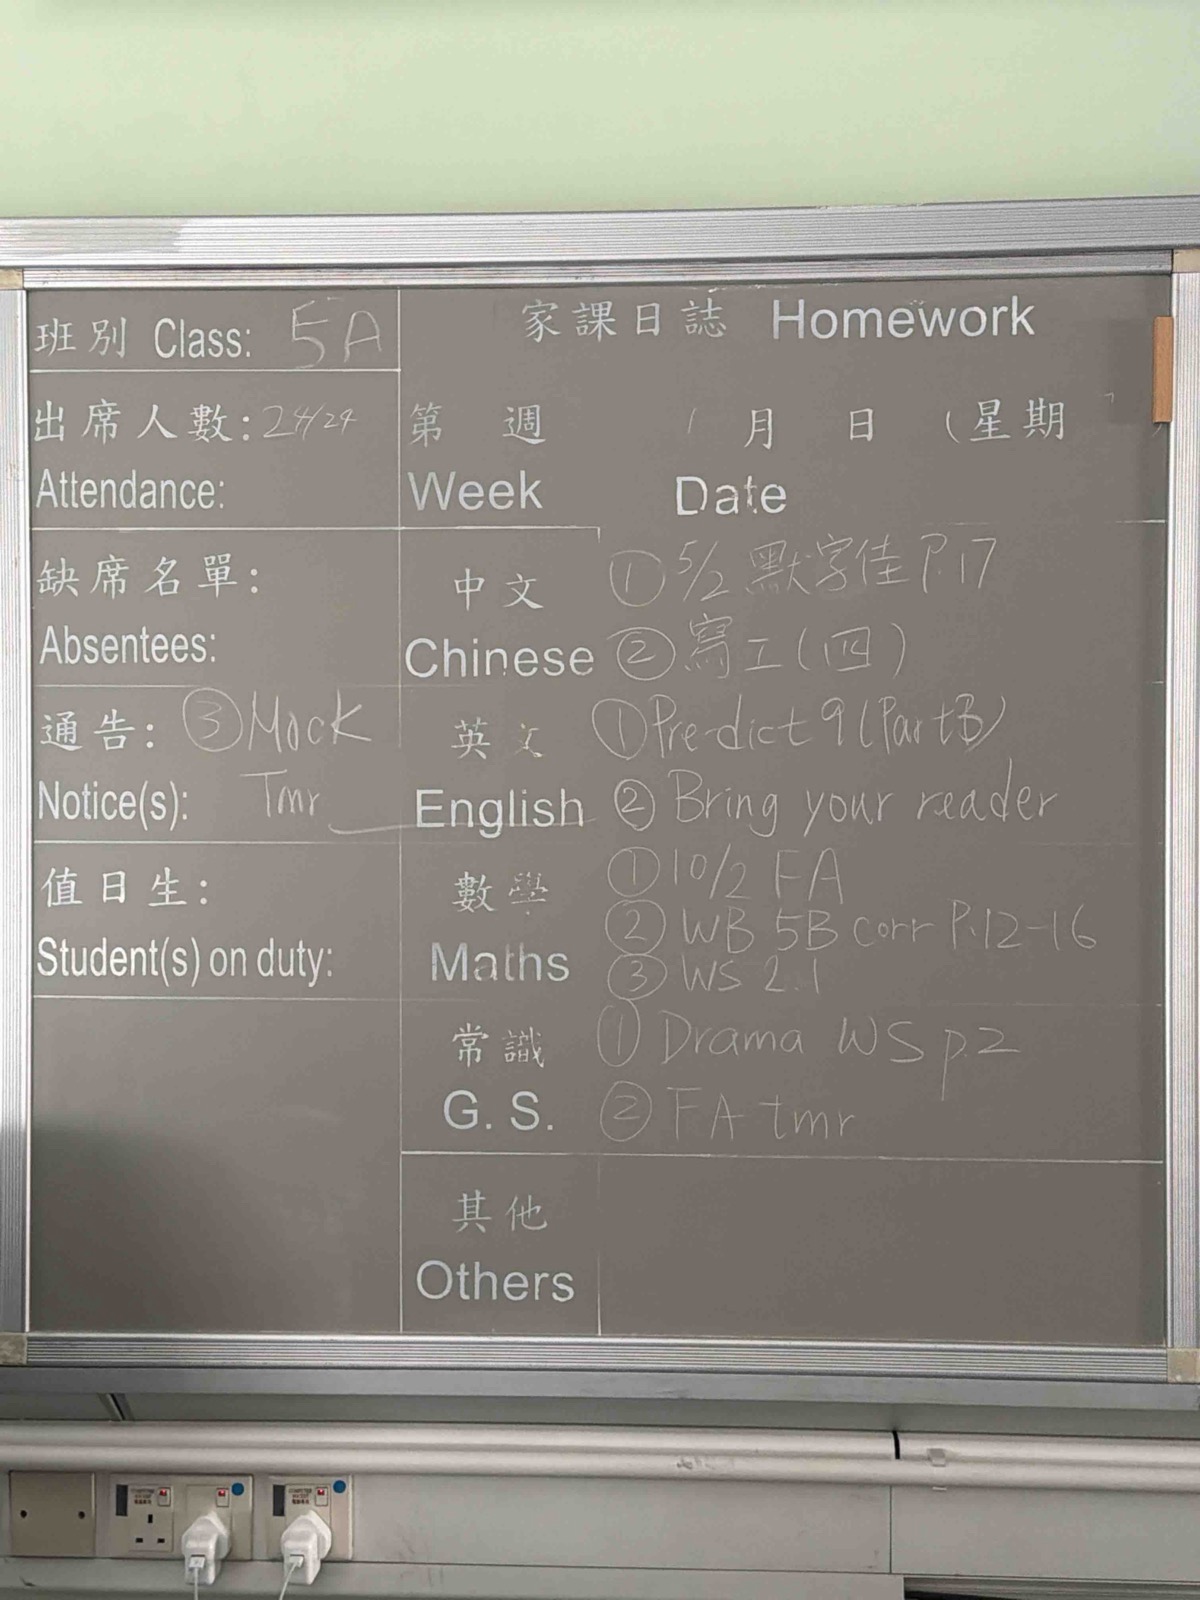 班別 Class: 5A
出席人數: 24/24
Attendance:
缺席名單:
Absentees:
通告: ③ Mock
Notice(s): Tmr
值日生:
Student(s) on duty:
家課日誌 Homework
第 週 月 日 (星期
Week Date
中文 ① 5/2 默字佳 P.17
Chinese ② 寫工(四)
英文 ① Pre-dict 9 (Part B)
English ② Bring your reader
數學 ① 10/2 FA
② WB 5B corr P.12-16
Maths ③ WS 2.1
常識 ① Drama WS p.2
G. S. ② FA tmr
其他
Others